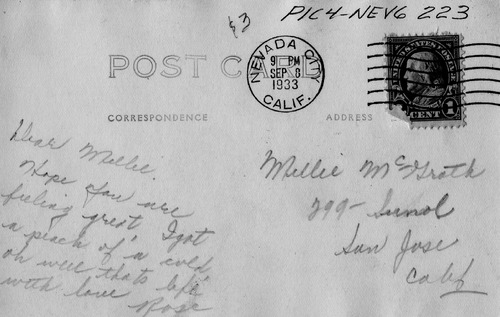 $3
PIC4-NEV6 223
POST CARD
NEVADA CITY
9 PM
SEP 8
1933
CALIF.
UNITED STATES POSTAGE
1 CENT
CORRESPONDENCE
ADDRESS
Dear Mellie.
Hope you are
feeling great I got
a peach of a cold
oh well thats life
with love Rose
Mellie McGrath
299- Sunol
San Jose
Calif